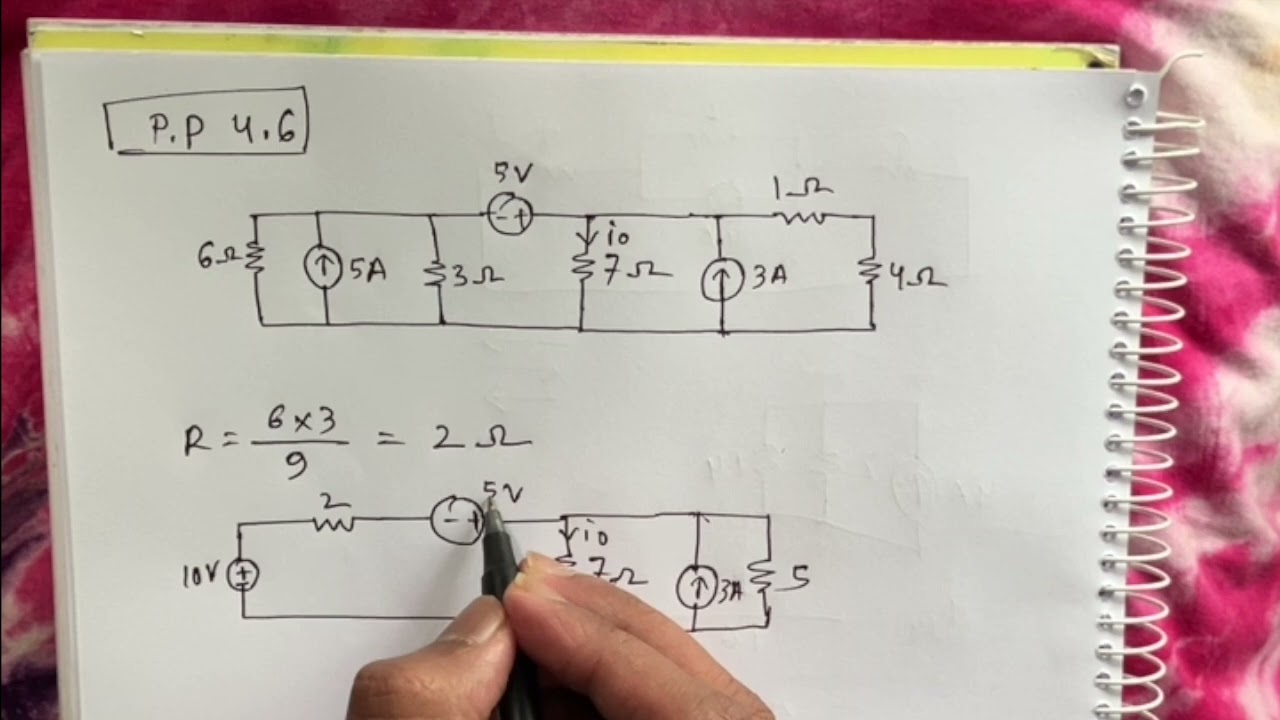 P.P 4.6
5V
1Ω
6Ω 5A 3Ω io 7Ω 3A 4Ω
R = 6×3/9 = 2Ω
2 5V
10V io 7Ω 3A 5